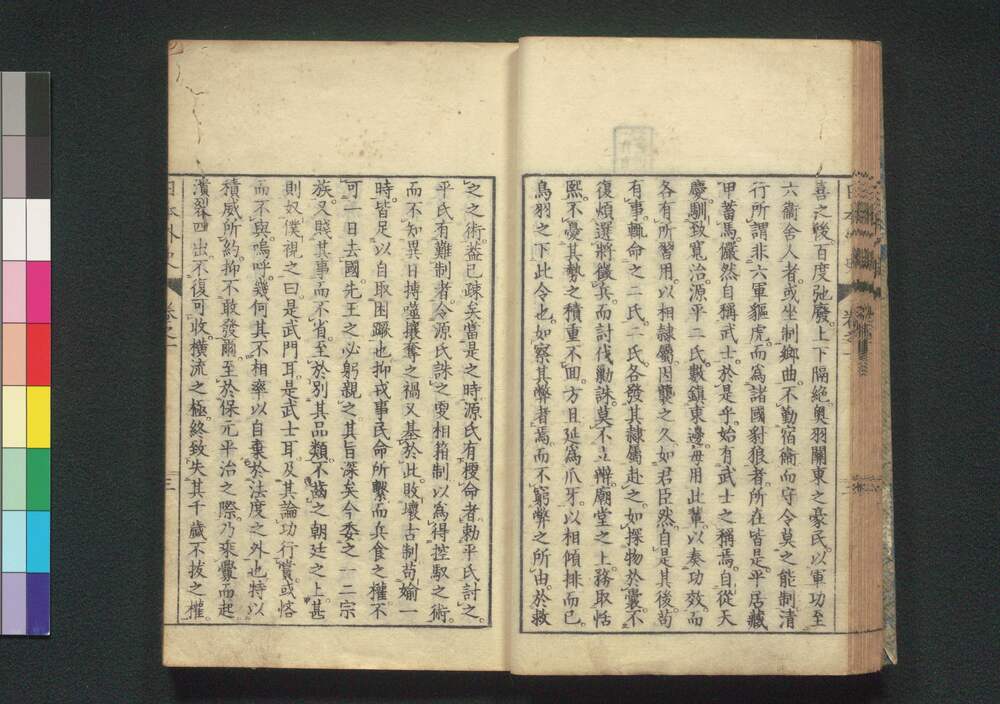 喜之後百度弛廢。上下隔絶。奥羽關東之豪民。以軍功至
六衞舍人者。或坐制鄉曲。不勤宿衞。而守令莫之能制。清
行所謂非六軍貙虎。而爲諸國豺狼者。所在皆是。平居藏
甲蓄馬。儼然自稱武士。於是乎。始有武士之稱焉。自從天
慶馴致寬治。源平二氏。數鎭東邊。毎用此輩。以奏功效。而
各有所習用。以相隷屬。因襲之久。如君臣然。自是其後。苟
有事。輒命之二氏。二氏各發其隷屬赴之。如探物於囊。不
復煩選將徵兵。而討伐勦誅。莫不立辨。廟堂之上。務取恬
熙。不憂其勢之積重不回。方且延爲爪牙。以相傾排而已。
鳥羽之下此令也。如察其弊者焉。而不窮弊之所由。於救
之之術。蓋已疎矣。當是之時。源氏有㮣命者。勅平氏討之。
平氏有難制者。令源氏誅之。更相箝制。以爲得控馭之術。
而不知異日搏噬攘奪之禍。又基於此。敗壞古制。苟媮一
時。皆足以自取困蹶也。抑戎事民命所繫。而兵食之權。不
可一日去國。先王之必躬親之。其旨深矣。今委之一二宗
族。又賤其事而不省。至於別其品類。不齒之朝廷之上。甚
則奴僕視之。曰是武門耳。是武士耳。及其論功行賞。或悋
而不與。嗚呼。幾何其不相率以自棄於法度之外也。特以
積威所約。抑不敢發爾。至於保元平治之際。乃乘釁而起
潰裂四出。不復可收。橫流之極。終致失其千歲不拔之權。
日本外史
卷之一
三